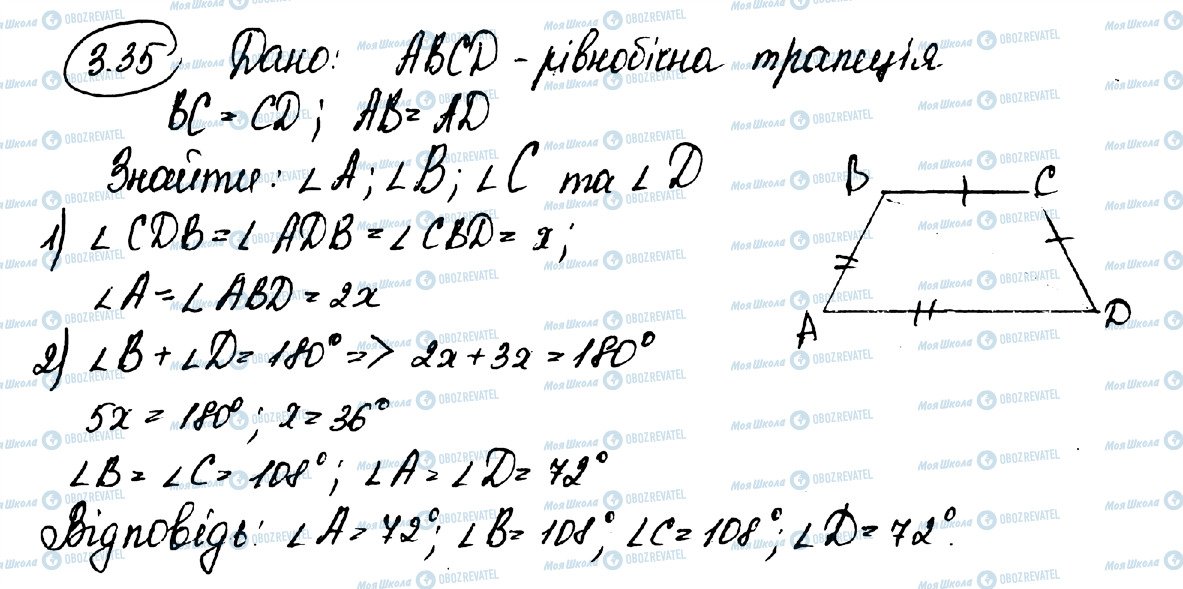 3.35 Дано: ABCD - рівнобічна трапеція
BC = CD; AB = AD
Знайти: ∠A; ∠B; ∠C та ∠D
1) ∠CDB = ∠ADB = ∠CBD = x;
∠A = ∠ABD = 2x
2) ∠B + ∠D = 180° => 2x + 3x = 180°
5x = 180°; x = 36°
∠B = ∠C = 108°; ∠A = ∠D = 72°
Відповідь: ∠A = 72°; ∠B = 108°, ∠C = 108°; ∠D = 72°.
B C
A D
Моя Школа OBOZREVATEL